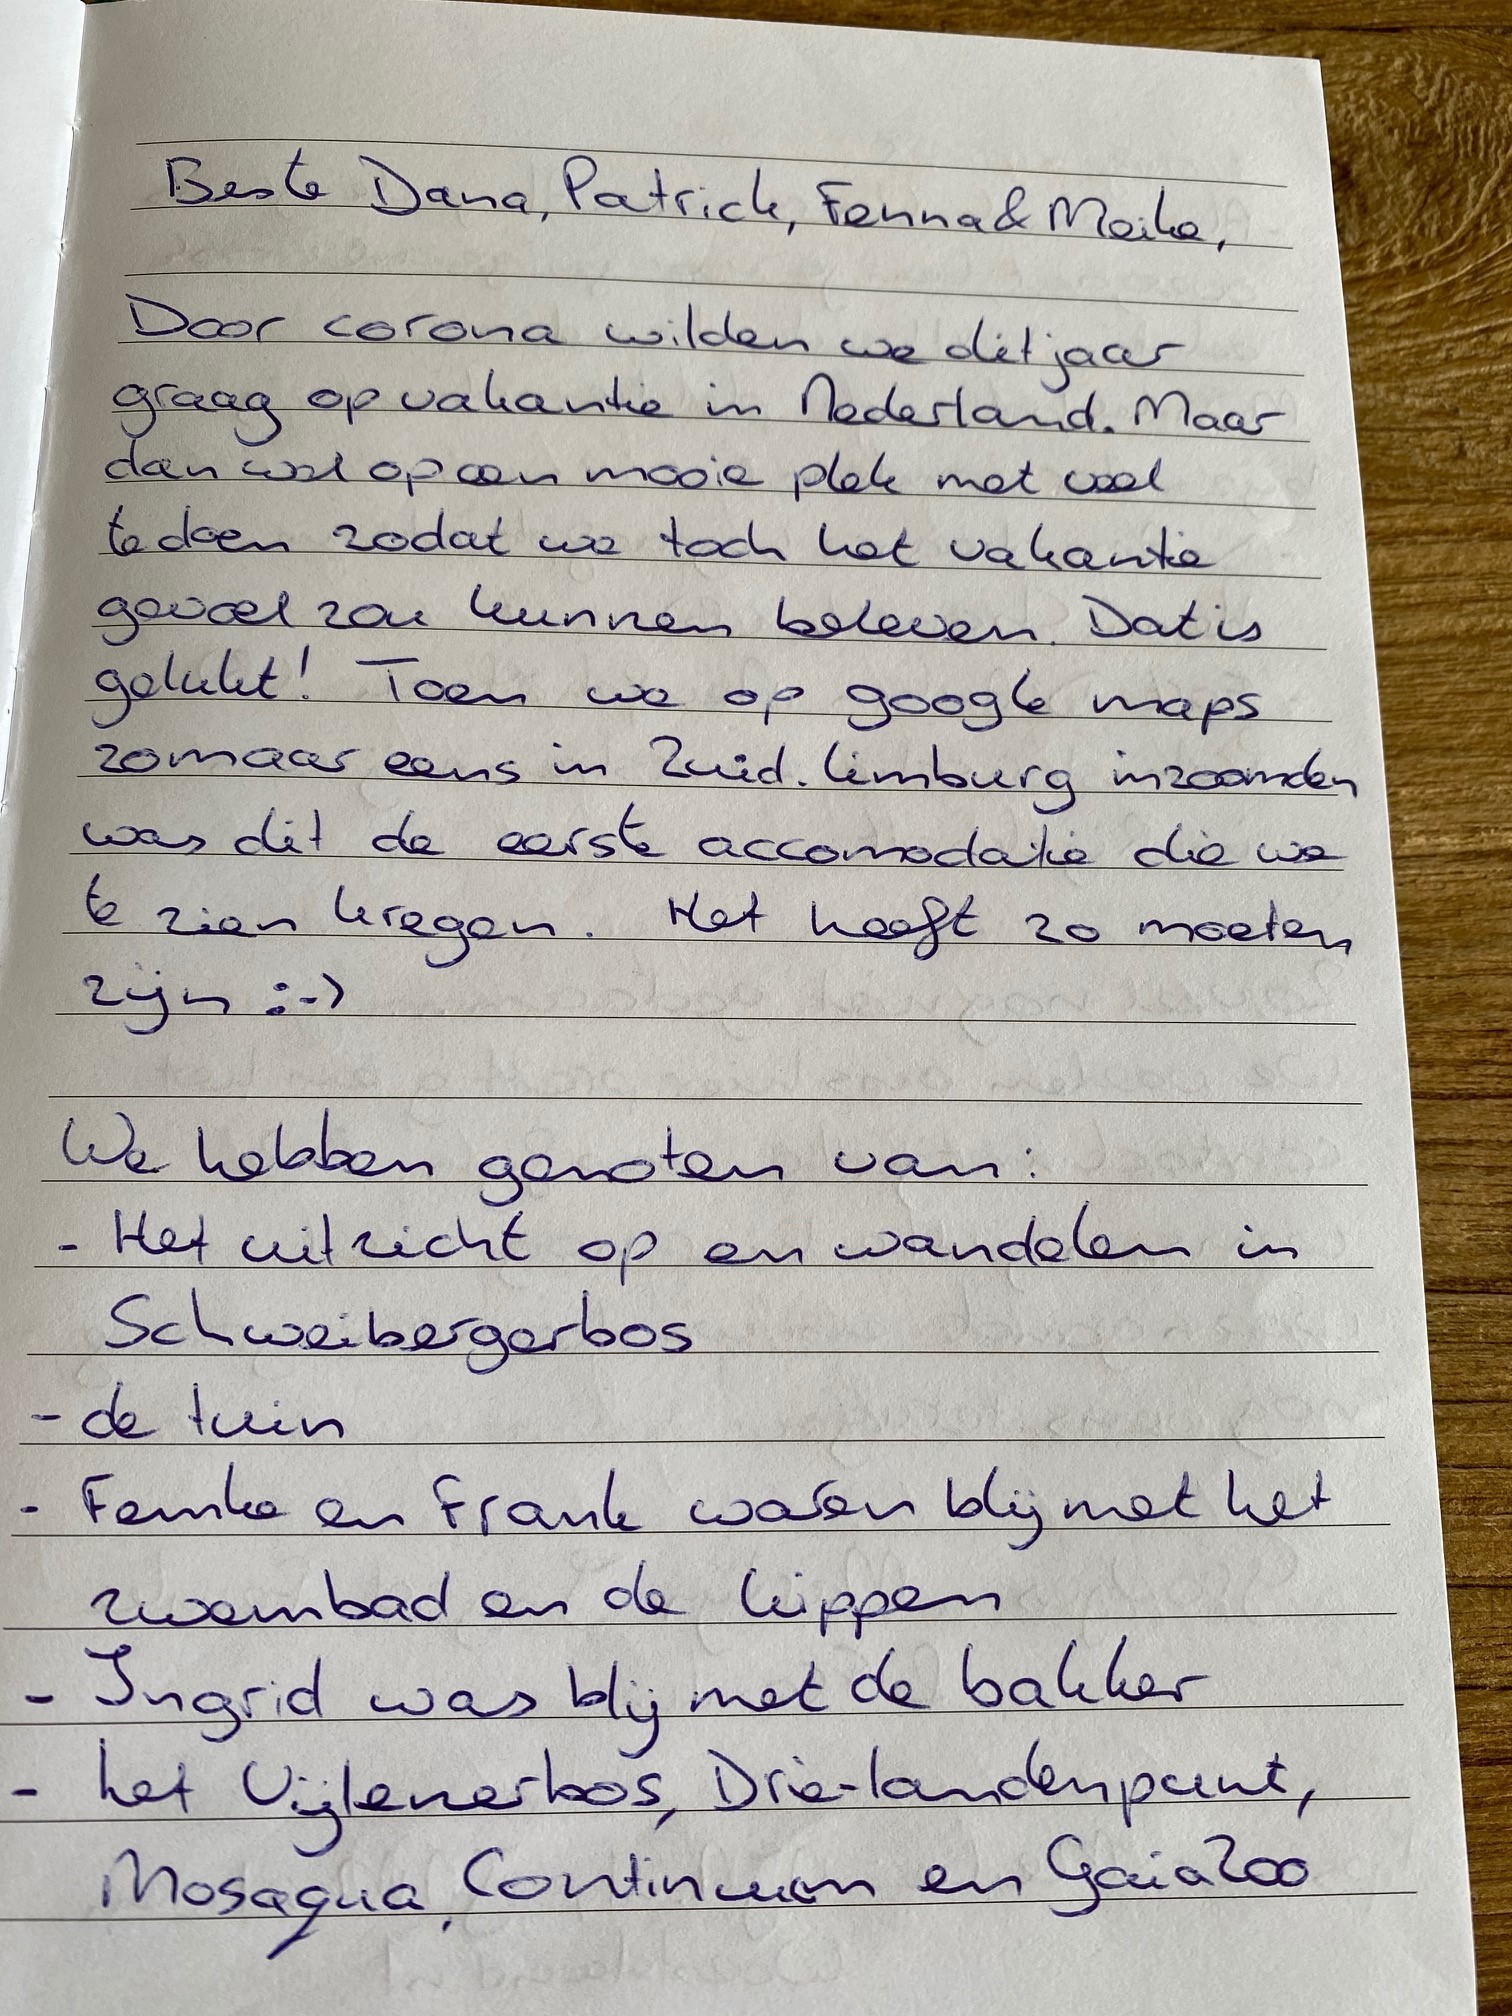 Beste Dana, Patrick, Fenna & Meike,
Door corona wilden we dit jaar
graag op vakantie in Nederland. Maar
dan wel op een mooie plek met veel
te doen zodat we toch het vakantie
gevoel zou kunnen beleven. Dat is
gelukt! Toen we op google maps
zomaar eens in Zuid-limburg inzoomden
was dit de eerste accomodatie die we
te zien kregen. Het heeft zo moeten
zijn :-)
We hebben genoten van:
- Het uitzicht op en wandelen in
Schweibergerbos
- de tuin
- Femke en Frank waren blij met het
zwembad en de kippen
- Ingrid was blij met de bakker
- het Vijlenerbos, Drie-landenpunt,
Mosaqua, Continuum en GaiaZoo